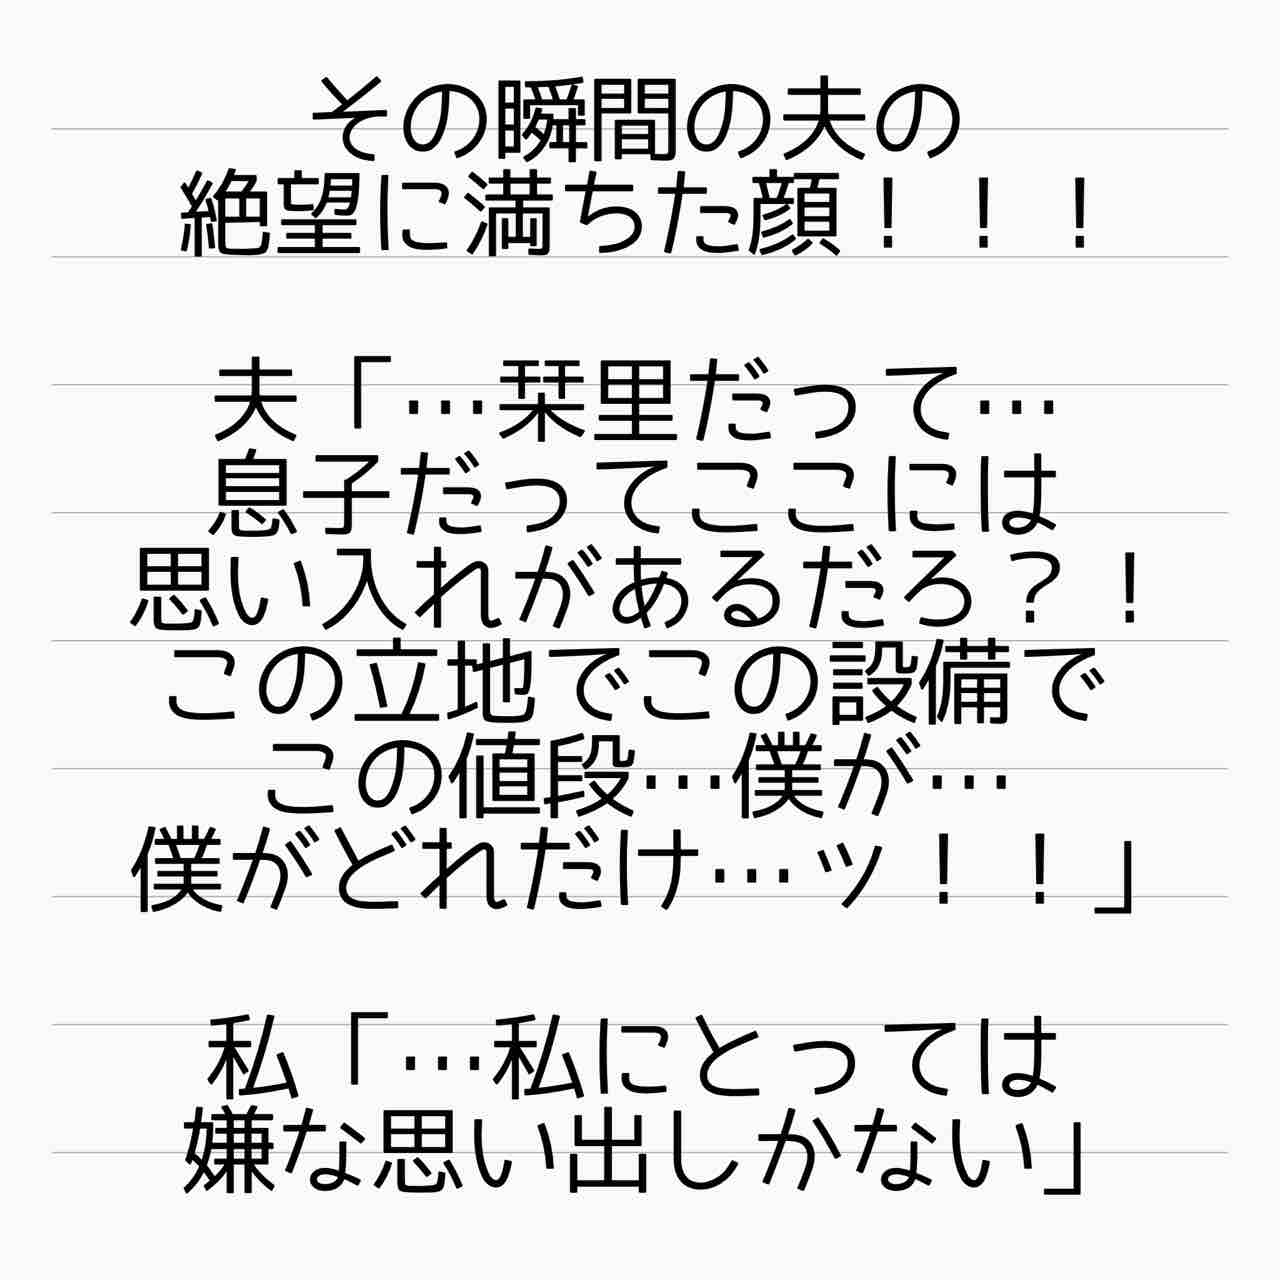 その瞬間の夫の
絶望に満ちた顔！！！
夫「…栞里だって…
息子だってここには
思い入れがあるだろ？！
この立地でこの設備で
この値段…僕が…
僕がどれだけ…ッ！！」
私「…私にとっては
嫌な思い出しかない」